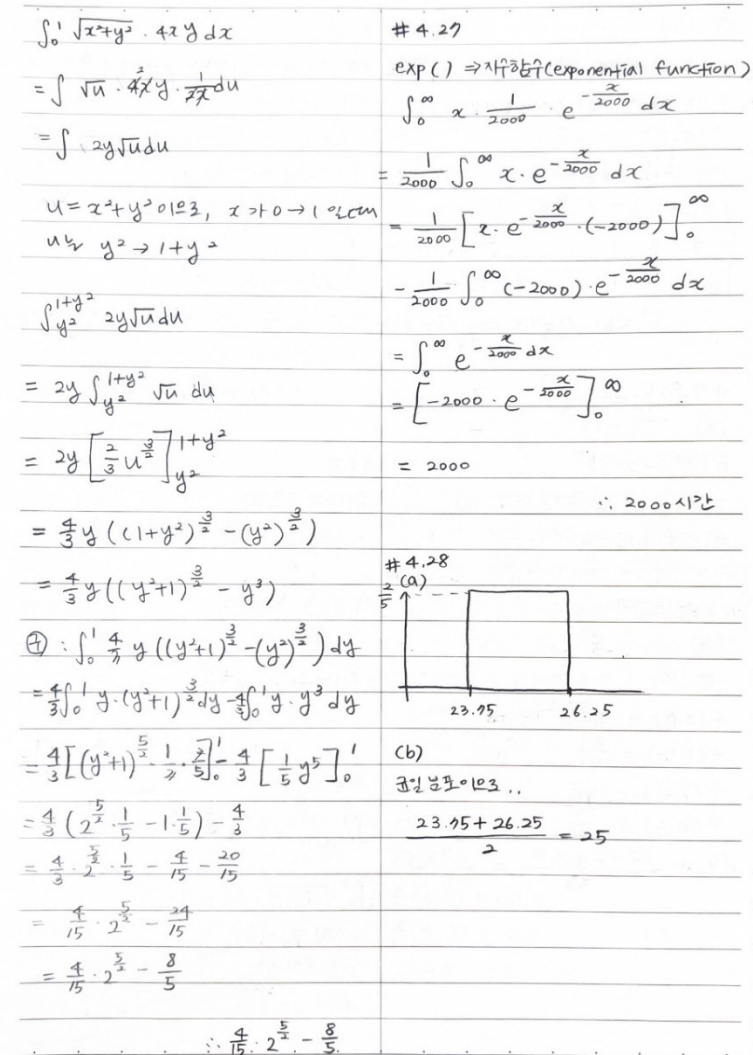 ∫₀¹ √(x²+y²) · 4xy dx
= ∫ √u · 4x y · 1/2x du
2
= ∫ 2y√u du
u = x²+y² 이므로, x가 0 → 1 일 때
u는 y² → 1+y²
∫_{y²}^{1+y²} 2y√u du
= 2y ∫_{y²}^{1+y²} √u du
= 2y [2/3 u^{3/2}]_{y²}^{1+y²}
= 4/3 y ((1+y²)^{3/2} - (y²)^{3/2})
= 4/3 y ((y²+1)^{3/2} - y³)
: ∫₀¹ 4/3 y ((y²+1)^{3/2} - (y²)^{3/2}) dy
= 4/3 ∫₀¹ y·(y²+1)^{3/2} dy - 4/3 ∫₀¹ y·y³ dy
= 4/3 [(y²+1)^{5/2} · 1/2 · 2/5]₀¹ - 4/3 [1/5 y⁵]₀¹
= 4/3 (2^{5/2} · 1/5 - 1·1/5) - 4/3
= 4/3 · 2^{5/2} · 1/5 - 4/15 - 20/15
= 4/15 · 2^{5/2} - 24/15
= 4/15 · 2^{5/2} - 8/5
∴ 4/15 · 2^{5/2} - 8/5
# 4.27
exp() ⇒ 지수함수(exponential function)
∫₀^∞ x · 1/2000 · e^{-x/2000} dx
= 1/2000 ∫₀^∞ x · e^{-x/2000} dx
= 1/2000 [x · e^{-x/2000} · (-2000)]₀^∞
- 1/2000 ∫₀^∞ (-2000) · e^{-x/2000} dx
= ∫₀^∞ e^{-x/2000} dx
= [-2000 · e^{-x/2000}]₀^∞
= 2000
∴ 2000시간
# 4.28
(a)
2/5
23.75 26.25
(b)
균일분포이므로..
(23.75 + 26.25)/2 = 25